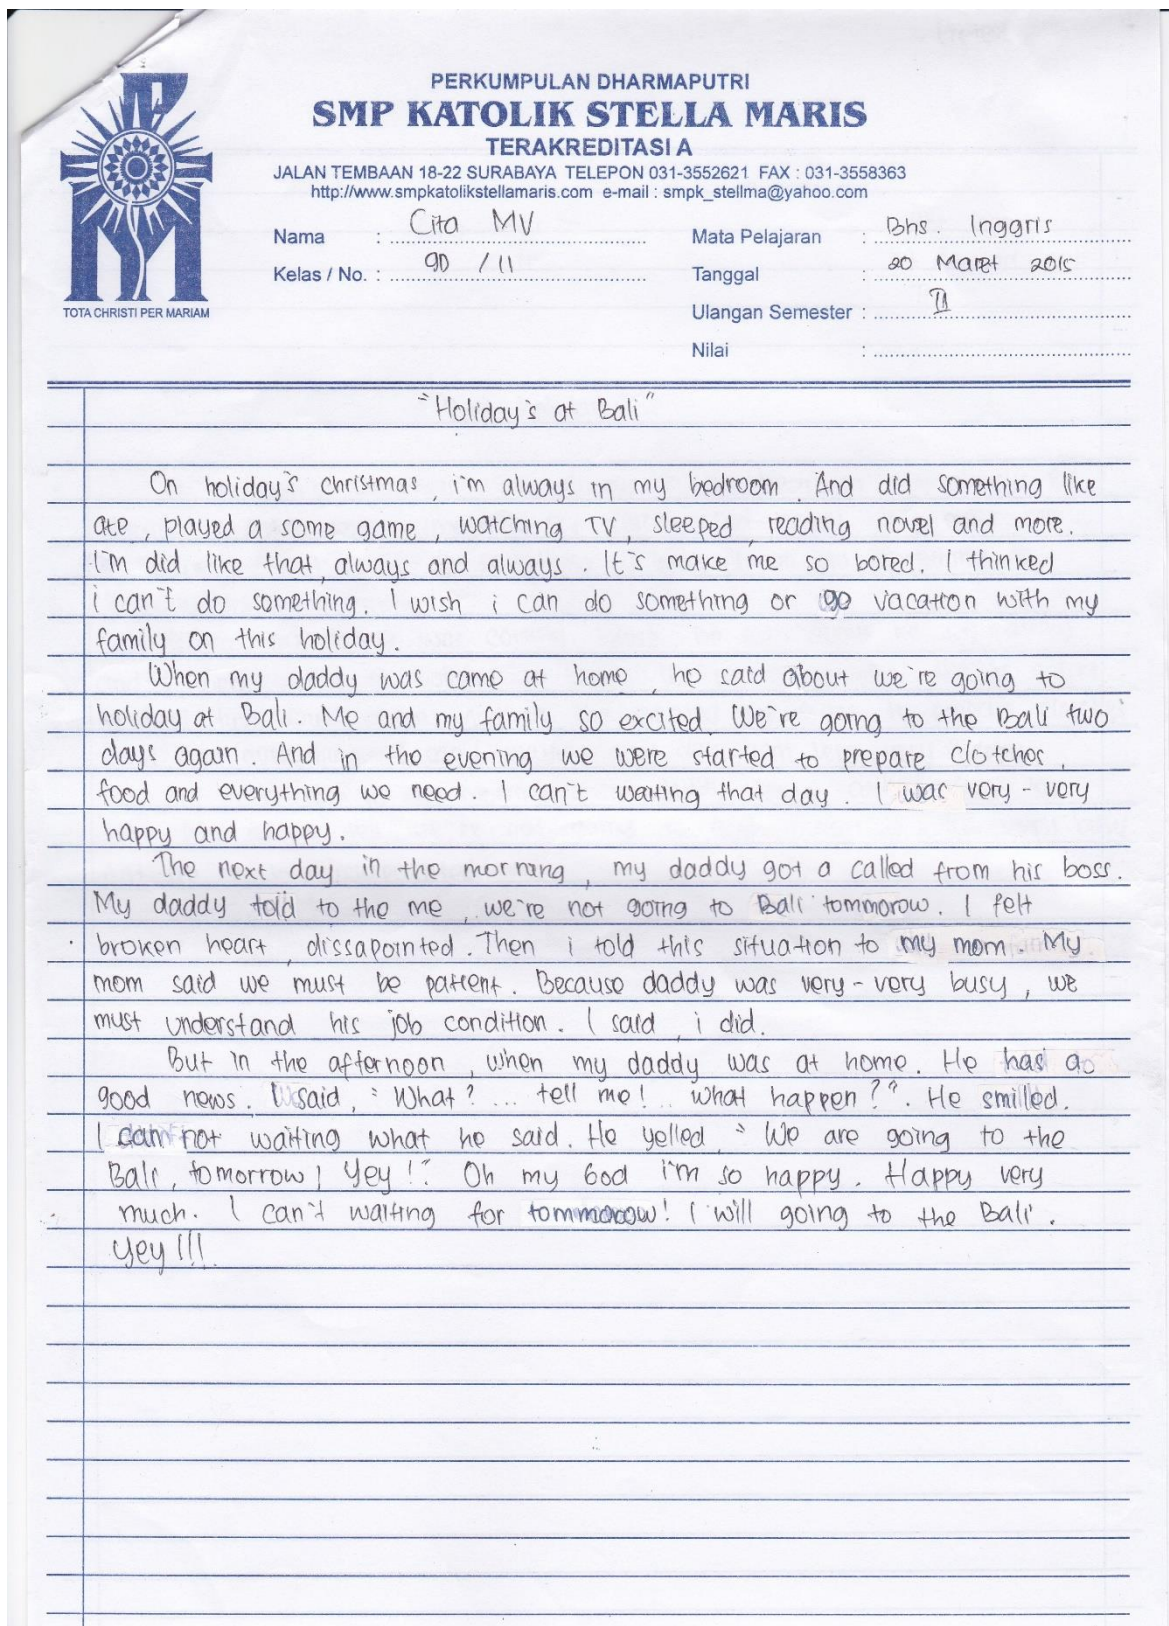 PERKUMPULAN DHARMAPUTRI
SMP KATOLIK STELLA MARIS
TERAKREDITASI A
JALAN TEMBAAN 18-22 SURABAYA TELEPON 031-3552621 FAX : 031-3558363
http://www.smpkatolikstellamaris.com e-mail : smpk_stellma@yahoo.com
Nama : Cita MV
Mata Pelajaran : Bhs. Inggris
Kelas / No. : 9D / 11
Tanggal : 20 Maret 2015
Ulangan Semester : II
Nilai :
TOTA CHRISTI PER MARIAM
"Holiday's at Bali"
On holiday's christmas, i'm always in my bedroom. And did something like
ate, played a some game, watching TV, sleeped, reading novel and more.
I'm did like that, always and always. It's make me so bored. I thinked
i can't do something. I wish i can do something or go vacation with my
family on this holiday.
When my daddy was came at home, he said about we're going to
holiday at Bali. Me and my family so excited. We're going to the Bali two
days again. And in the evening we were started to prepare clotches,
food and everything we need. I can't waiting that day. I was very - very
happy and happy.
The next day in the morning, my daddy got a called from his boss.
My daddy told to the me, we're not going to Bali tommorow. I felt
broken heart, dissapointed. Then i told this situation to my mom. My
mom said we must be patient. Because daddy was very - very busy, we
must understand his job condition. I said, i did.
But in the afternoon, when my daddy was at home. He has a
good news. I said, "What? ... tell me! .. what happen?". He smilled.
I can not waiting what he said. He yelled, "We are going to the
Bali, tomorrow! Yey!" Oh my God i'm so happy. Happy very
much. I can't waiting for tommorow! I will going to the Bali.
Yey!!!